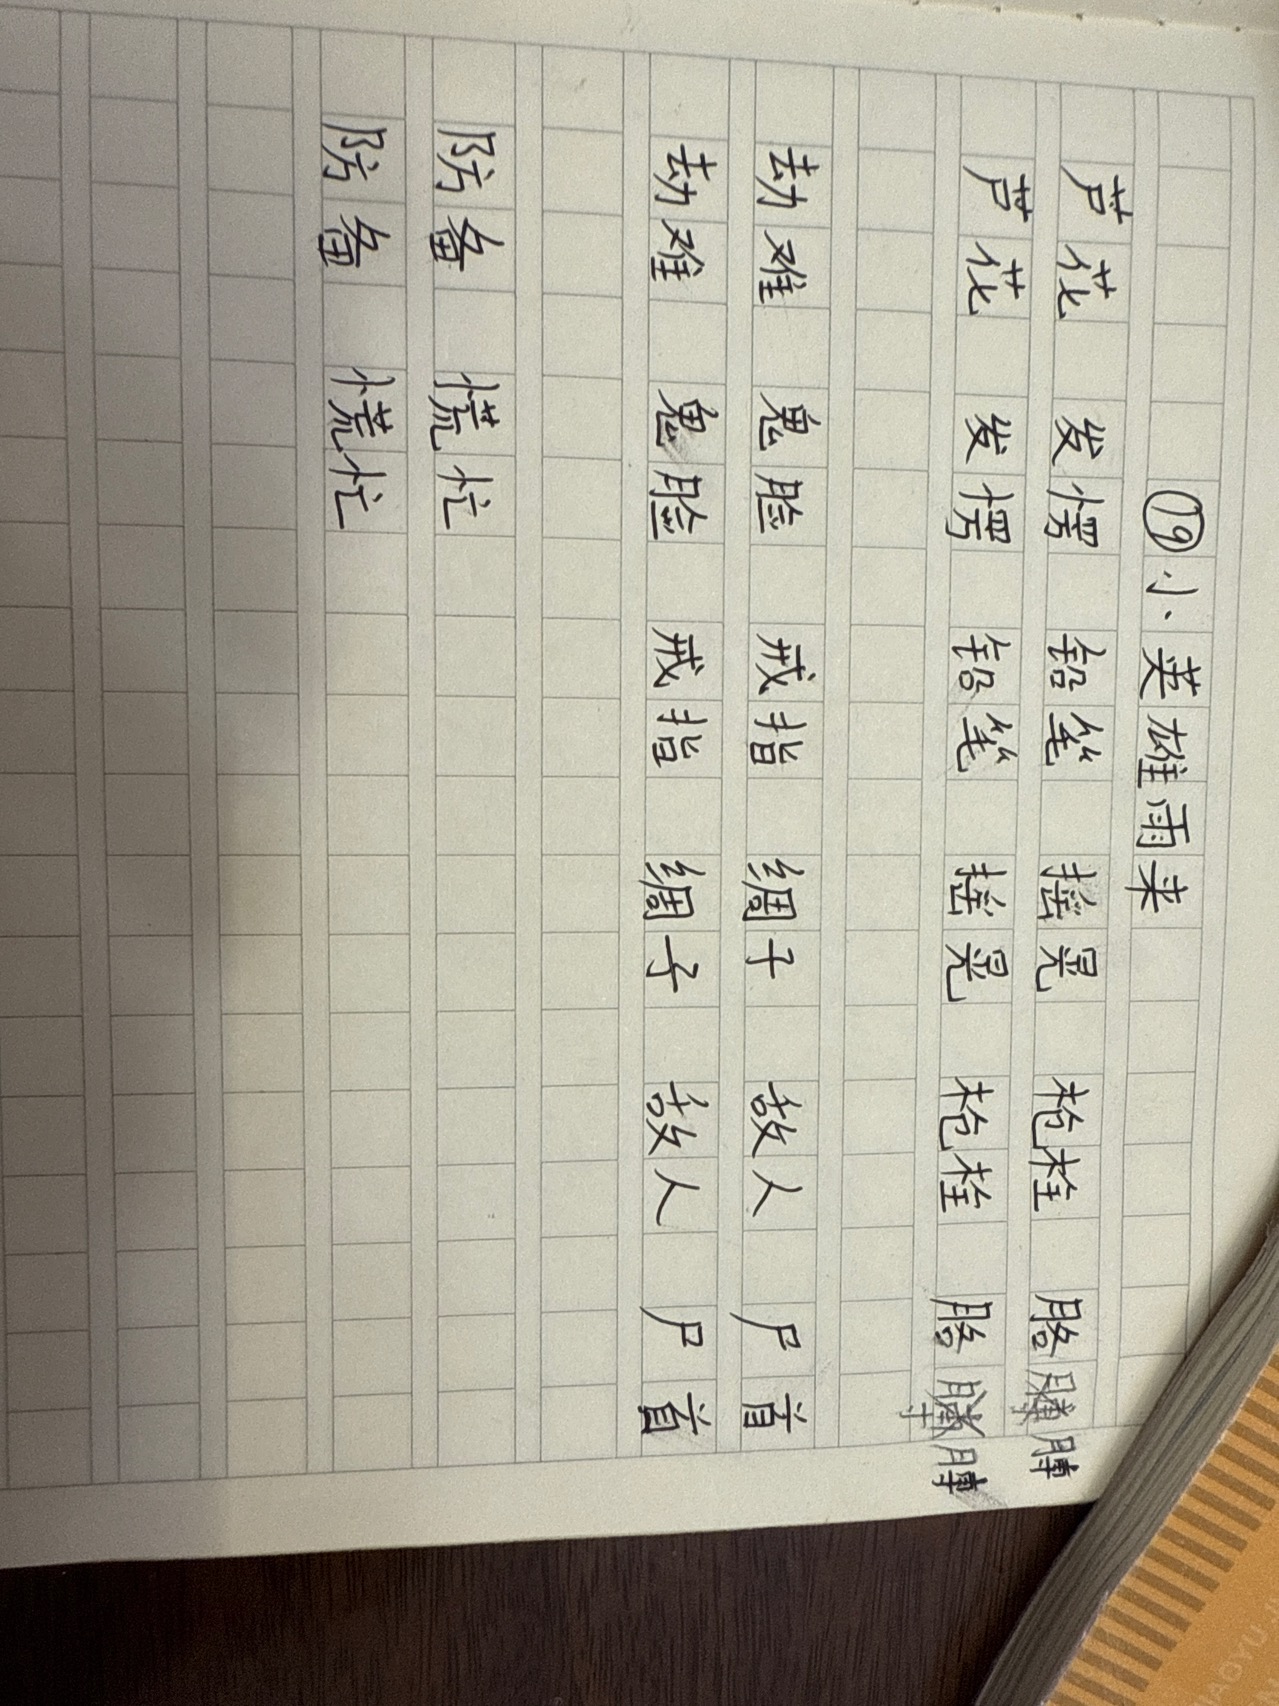 ⑲小英雄雨来
芦花 发愣 铅笔 摇晃 枪栓 胳膊
芦花 发愣 铅笔 摇晃 枪栓 胳膊
劫难 鬼脸 戒指 绸子 敌人 尸首
劫难 鬼脸 戒指 绸子 敌人 尸首
防备 慌忙
防备 慌忙